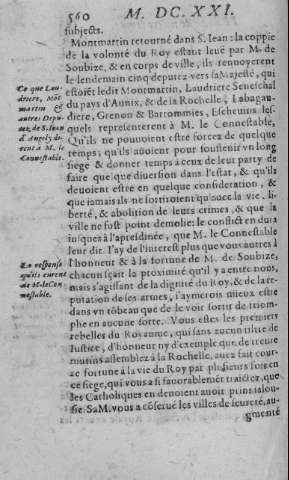 560 M. DC. XXI.
subjects.
Montmartin retourné dans S. Iean : la coppie
de la volonté du Roy estant leuë par Mr de
Soubize, & en corps de ville, ils renuoyerent
le lendemain cinq deputez vers sa Majesté, qui
estoiēt ledit Montmartin, Laudriere Seneschal
du pays d'Aunix, & de la Rochelle, Labagau-
diere, Grenon & Bartommies, Escheuins les-
quels representerent à M. le Connestable,
Qu'ils ne pouuoient estre forcez de quelque
temps; qu'ils auoient pour soustenir vn long
siege & donner temps à ceux de leur party de
faire quelque diuersion dans l'estat, & qu'ils
deuoient estre en quelque consideration, &
que iamais ils ne sortiroient qu'auec la vie, li-
berté, & abolition de leurs crimes, & que la
ville ne fust point demolie: le conflict en dura
iusques à l'apresdinée, que M. le Connestable
leur dit. I'ay de l'interest plus que vous autres à
l'honneur & à la fortune de M. de Soubize,
chacun sçait la proximité qu'il y a entre nous,
mais s'agissant de la dignité du Roy, & de la re-
putation de ses armes, i'aymerois mieux estre
dans vn tōbeau que de le voir sortir de triom-
phe en aucune sorte. Vous estes les premiers
rebelles du Royaume, qui sans aucun tiltre de
Iustice, d'honneur ny d'exemple que de trente
mutins assemblez à la Rochelle, auez fait cour-
re fortune à la vie du Roy par plusieurs fois en
ce siege, qui vous a si fauorablemēt traictez, que
les Catholiques en deuoient auoir prins ialou-
sie. Sa M. vous a cōserué les villes de seureté, au-
gmenté
Ce que Lau-
driere, Mōt
martin &
autres Depu-
tez de S. Iean
d'Angely di-
rent à M. le
Connestable.
La response
qu'ils eurent
de M. le Con-
nestable.